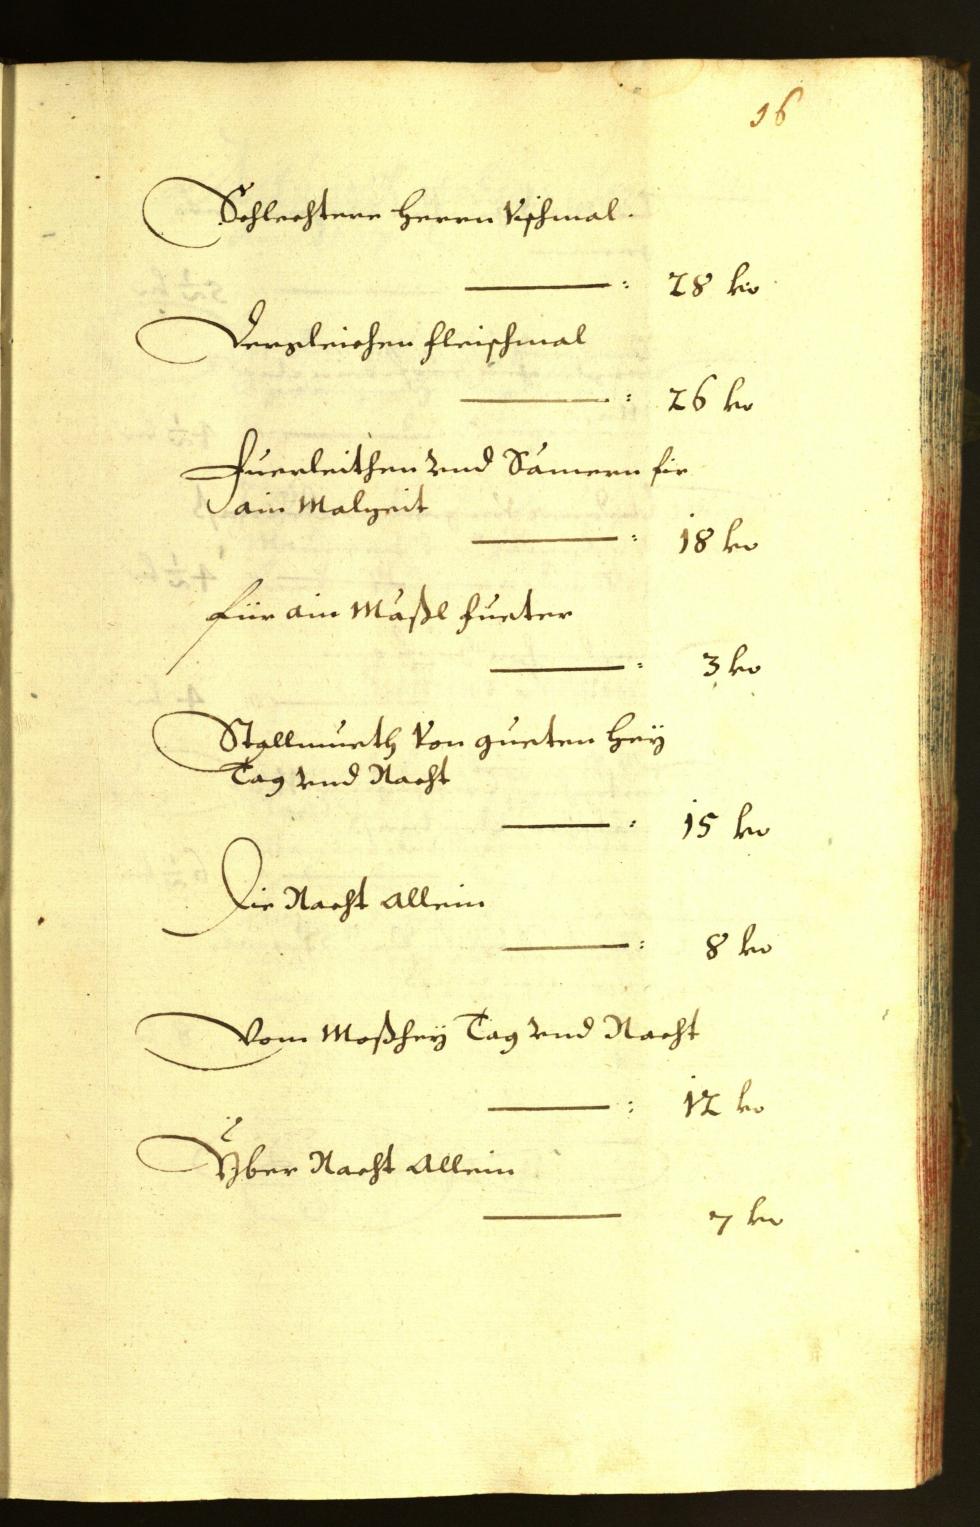 16
Schlechtere Herrn Vischmal.
: 28 kr
Dergleichen Fleischmal
: 26 kr
Fuerleithen vnd Sämern fir
ain Malzeit
: 18 kr
für ain Mäßl Fueter
: 3 kr
Stallmueth von gueten Hey
Tag vnd Nacht
: 15 kr
Die Nacht allein
: 8 kr
Vom Moßhey Tag vnd Nacht
: 12 kr
Yber Nacht allein
7 kr